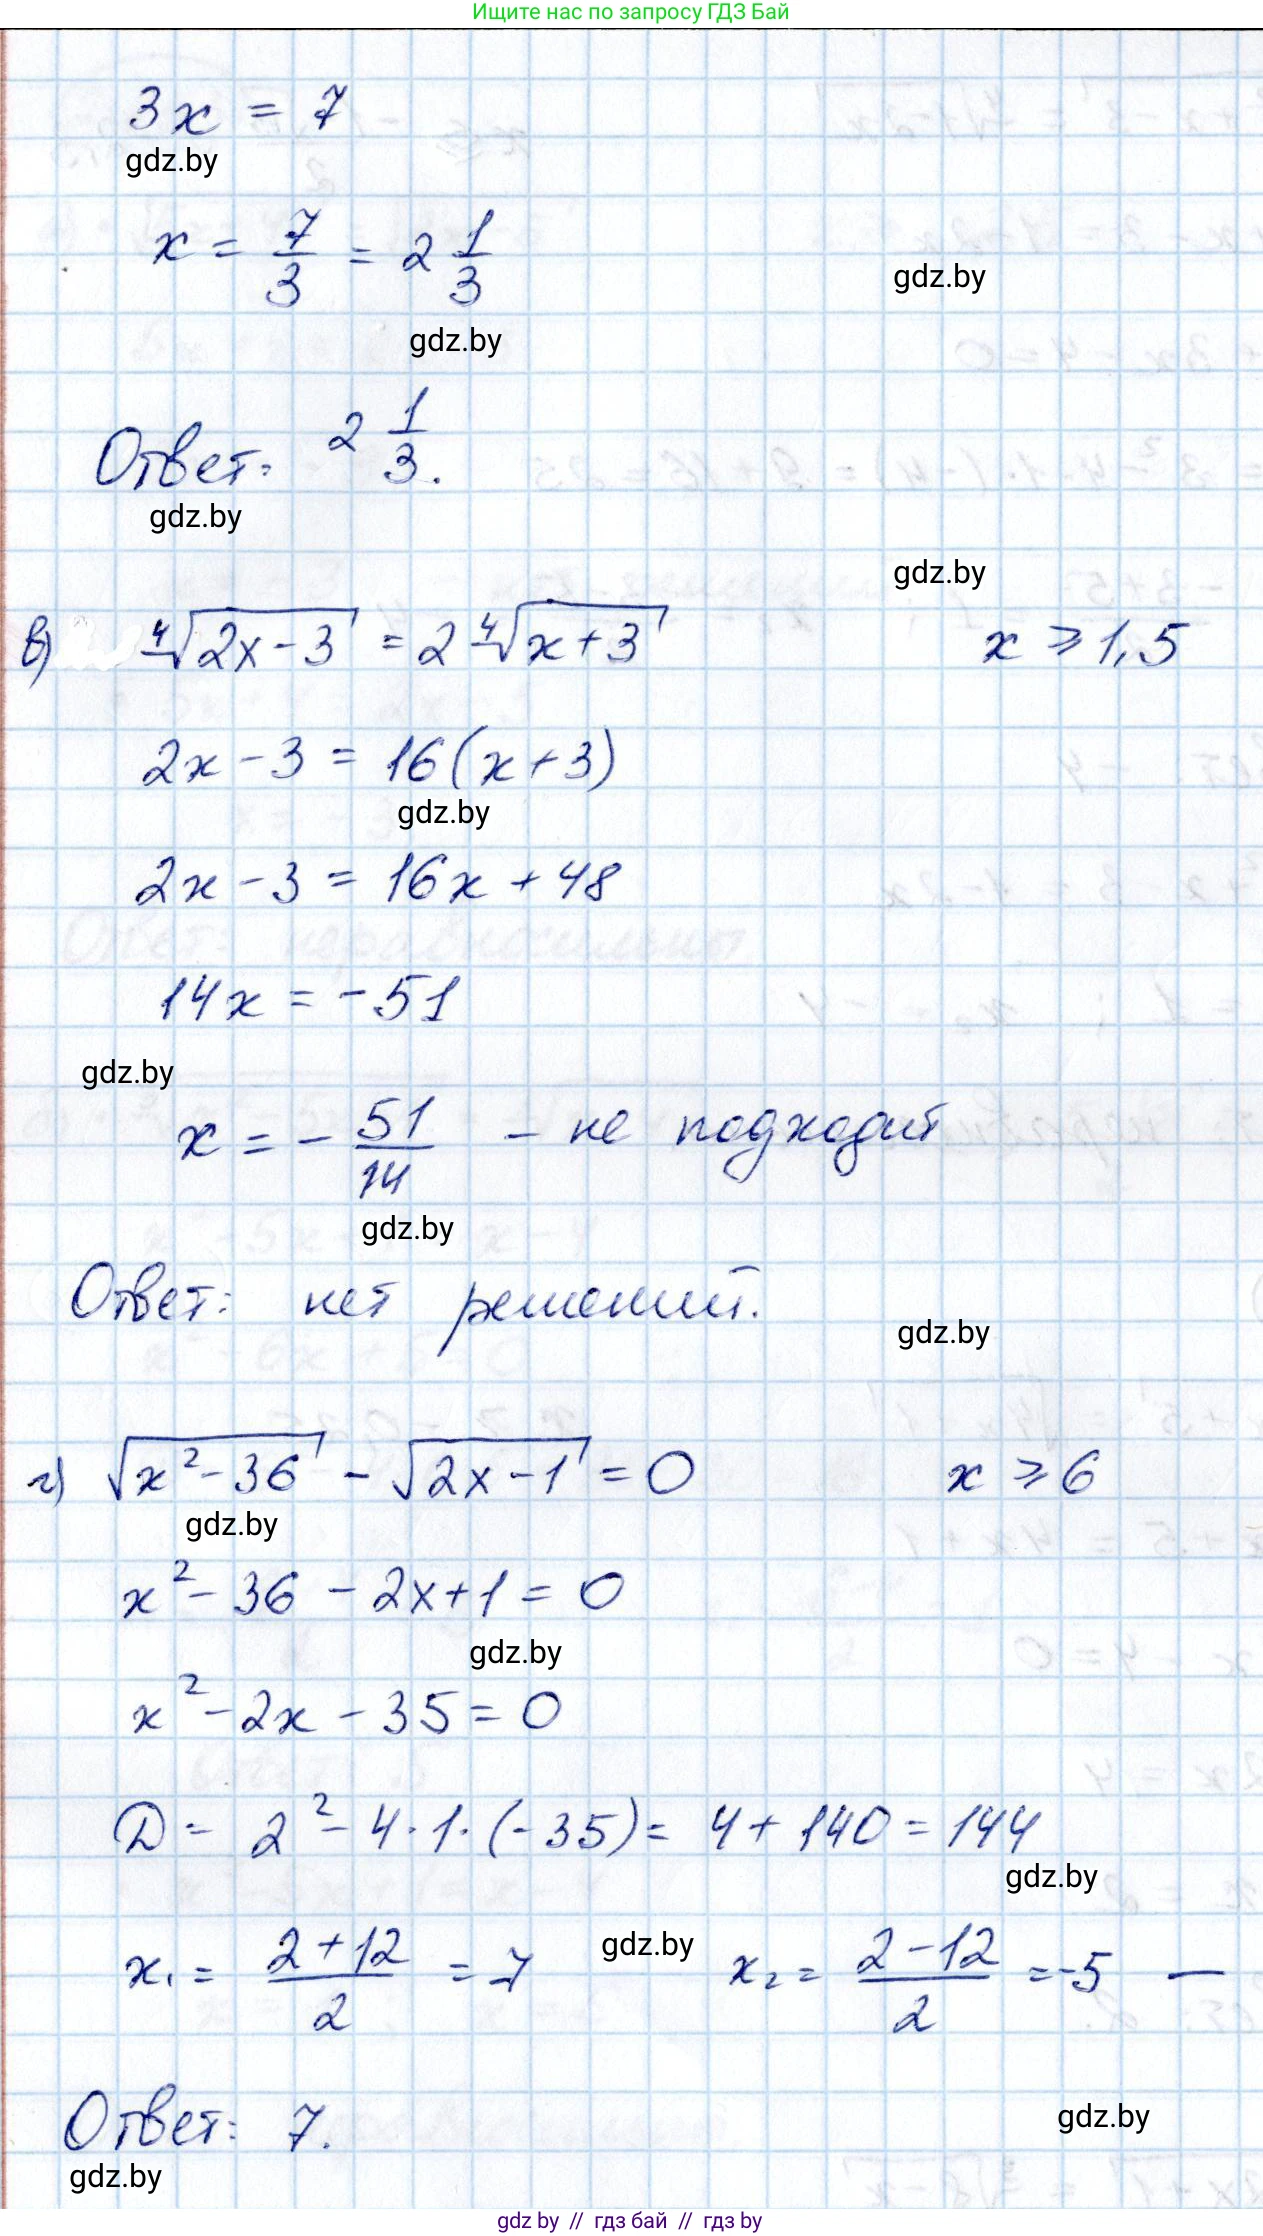 Ищите нас по запросу ГДЗ Бай
3x = 7
gdz.by
x = 7/3 = 2 1/3
gdz.by
gdz.by
Ответ: 2 1/3.
gdz.by
gdz.by
в) ⁴√(2x-3) = 2 ⁴√(x+3) x ⩾ 1,5
2x - 3 = 16(x+3)
gdz.by
2x - 3 = 16x + 48
14x = -51
gdz.by
x = - 51/14 - не подходит
gdz.by
Ответ: нет решений.
gdz.by
г) √(x²-36) - √(2x-1) = 0 x ⩾ 6
gdz.by
x² - 36 - 2x + 1 = 0
gdz.by
x² - 2x - 35 = 0
D = 2² - 4·1·(-35) = 4 + 140 = 144
gdz.by
x₁ = (2+12)/2 = 7 gdz.by x₂ = (2-12)/2 = -5 —
Ответ: 7.
gdz.by
gdz.by
gdz.by // гдз бай // гдз by